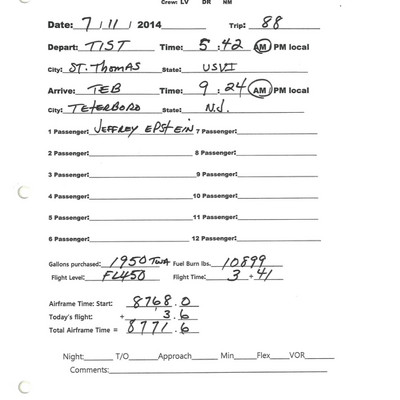 Crew: LV DR NM
Date: 7 / 11 / 2014 Trip: 88
Depart: TIST Time: 5 : 42 AM PM local
City: ST. THOMAS State: USVI
Arrive: TEB Time: 9 : 24 AM PM local
City: TETERBORO State: N.J.
1 Passenger: JEFFREY EPSTEIN 7 Passenger:
2 Passenger: 8 Passenger:
3 Passenger: 9 Passenger:
4 Passenger: 10 Passenger:
5 Passenger: 11 Passenger:
6 Passenger: 12 Passenger:
Gallons purchased: 1950 TWA Fuel Burn lbs. 10899
Flight Level: FL450 Flight Time: 3 + 41
Airframe Time: Start: 8768.0
Today's flight: + 3.6
Total Airframe Time = 8771.6
Night: T/O Approach Min Flex VOR
Comments: